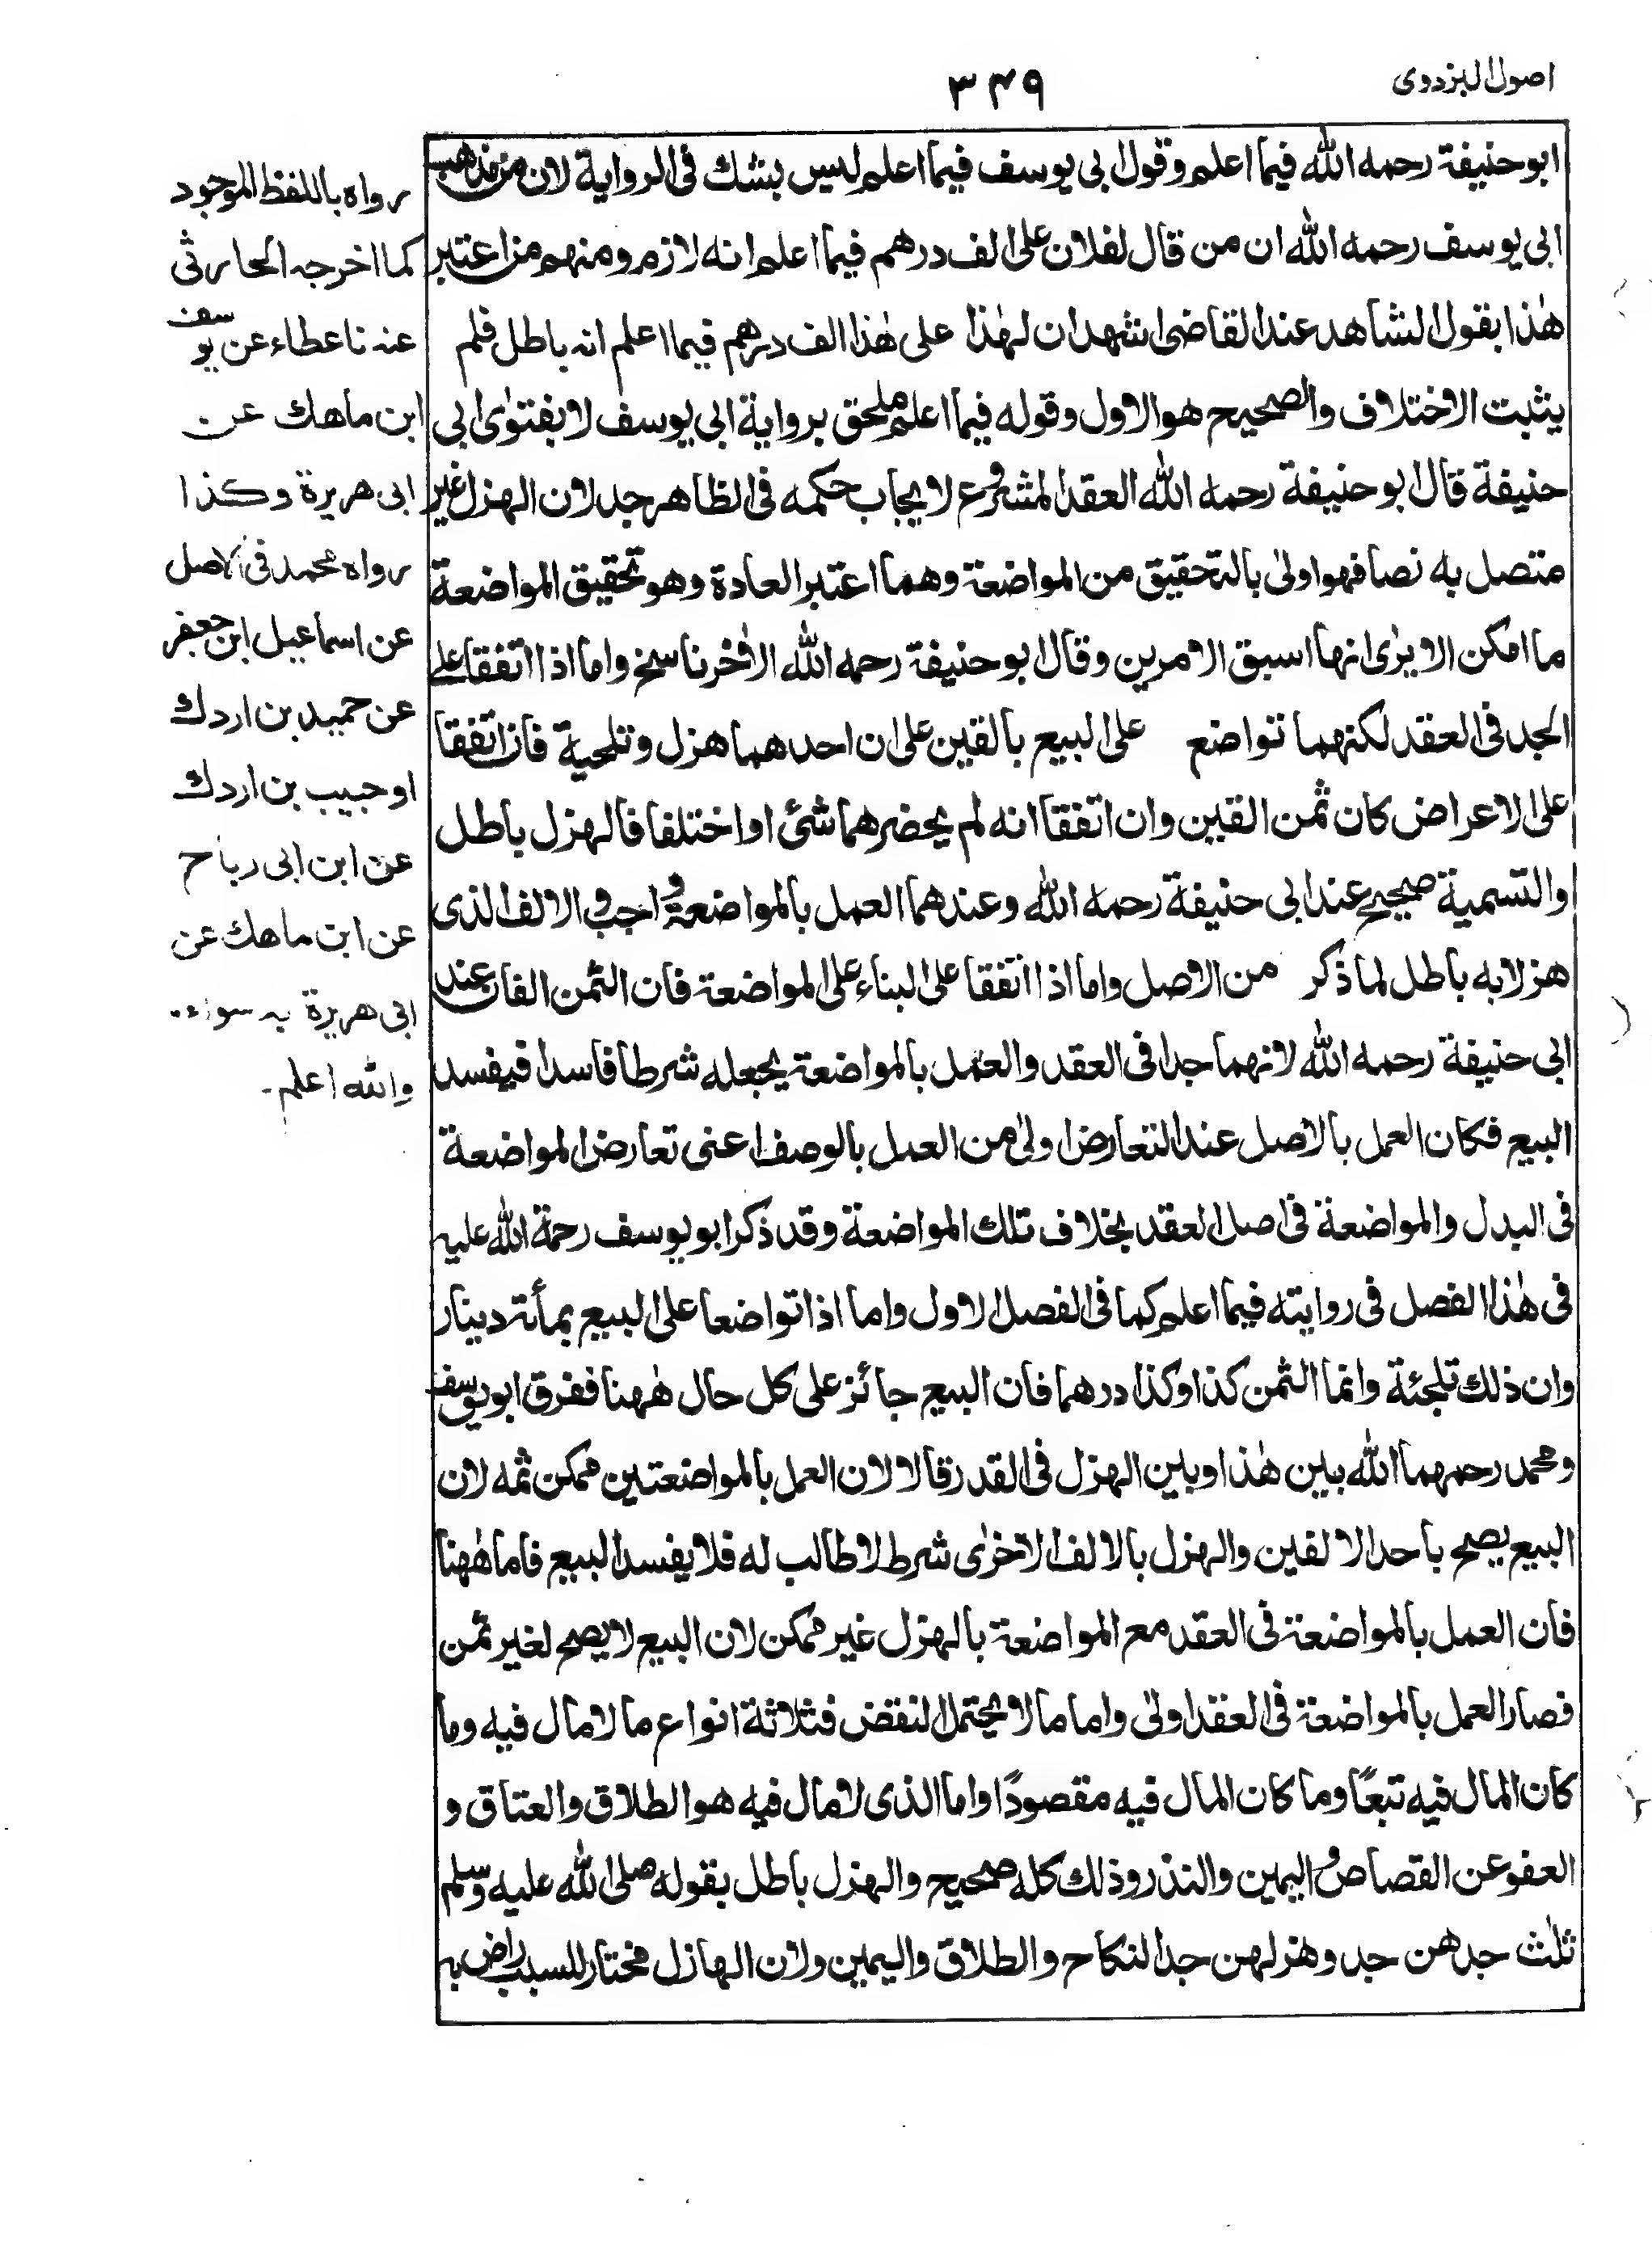 اصول البزدوی
۳۴۹
ابوحنیفة رحمه الله فیما اعلم وقول ابی یوسف فیما اعلم لیس بشك فی الروایة لان من مذهب
ابی یوسف رحمه الله ان من قال لفلان علی الف درهم فیما اعلم انه لازم ومنهم من اعتبر
هٰذا بقول الشاهد عند القاضی اشهد ان لهٰذا علی هٰذا الف درهم فیما اعلم انه باطل فلم
یثبت الاختلاف والصحیح هو الاول وقوله فیما اعلم ملحق بروایة ابی یوسف لا بفتوٰی ابی
حنیفة قال ابو حنیفة رحمه الله العقد المشروع لایجاب حکمه فی الظاهر جد لان الهزل غیر
متصل به نصا فهو اولیٰ بالتحقیق من المواضعة وهما اعتبر العادة وهو تحقیق المواضعة
ما امکن الا یرٰی انها اسبق الامرین وقال ابو حنیفة رحمه الله الاٰخر ناسخ واما اذا اتفقا علی
الجد فی العقد لکنهما تواضع علی البیع بالفین علی ان احدهما هزل وتلجیة فان اتفقا
علی الاعراض کان ثمن الفین وان اتفقا انه لم یحضرهما شئ او اختلفا فالهزل باطل
والتسمیة صحیح عند ابی حنیفة رحمه الله وعندهما العمل بالمواضعة واجب و الالف الذی
هزلا به باطل لما ذکر من الاصل واما اذا اتفقا علی البناء علی المواضعة فان الثمن الفان عند
ابی حنیفة رحمه الله لانهما جدا فی العقد والعمل بالمواضعة یجعله شرطا فاسدا فیفسد
البیع فکان العمل بالاصل عند التعارض اولیٰ من العمل بالوصف اعنی تعارض المواضعة
فی البدل والمواضعة فی اصل العقد بخلاف تلك المواضعة وقد ذکر ابو یوسف رحمة الله علیه
فی هٰذا الفصل فی روایته فیما اعلم کما فی الفصل الاول واما اذا تواضعا علی البیع بمأئة دینار
وان ذلك تلجئة وانما الثمن کذا وکذا درهما فان البیع جائز علی کل حال هٰهنا ففرق ابویوسف
ومحمد رحمهما الله بین هٰذا وبین الهزل فی القدر قالا لان العمل بالمواضعتین ممکن ثمه لان
البیع یصح باحد الالفین والهزل بالالف الاخرٰی شرط لا طالب له فلا یفسد البیع فاما هٰهنا
فان العمل بالمواضعة فی العقد مع المواضعة بالهزل غیر ممکن لان البیع لا یصح لغیر ثمن
فصار العمل بالمواضعة فی العقد اولیٰ واما ما لا یحتمل النقض فثلاثة انواع ما لا مال فیه وما
کان المال فیه تبعًا وما کان المال فیه مقصودًا واما الذی لا مال فیه هو الطلاق والعتاق و
العفو عن القصاص والیمین والنذر وذلك کله صحیح والهزل باطل بقوله صلی الله علیه وسلم
ثلٰث جدهن جد وهزلهن جد النکاح والطلاق والیمین ولان الهازل مختار للسبب راض به
رواه باللفظ الموجود
کما اخرجه الحارثی
عنه نا عطاء عن یوسف
ابن ماهك عن
ابی هریرة وکذا
رواه محمد فی الاصل
عن اسماعیل ابن جعفر
عن حمید بن اردك
او حبیب بن اردك
عن ابن ابی رباح
عن ابن ماهك عن
ابی هریرة به سواء.
والله اعلم۔